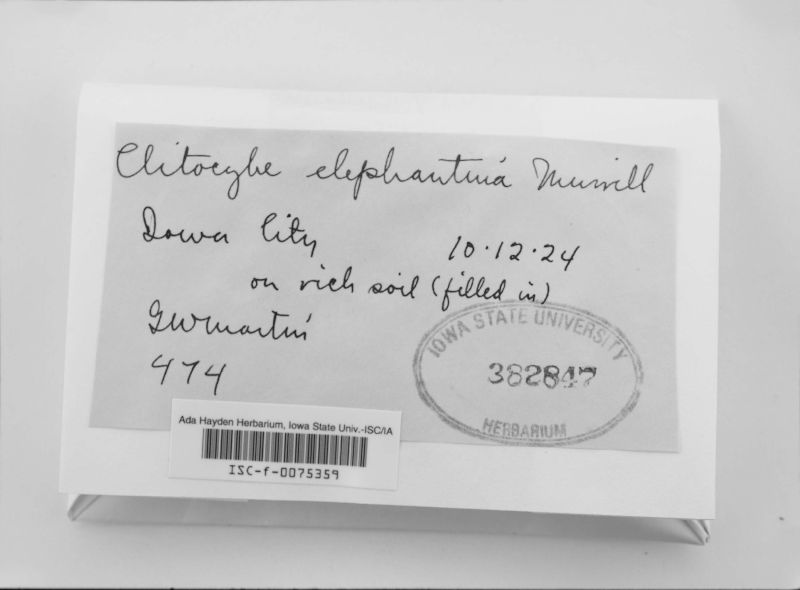 Clitocybe elephantina Murrill
Iowa City 10·12·24
on rich soil (filled in)
GWMartin
474
IOWA STATE UNIVERSITY
382847
HERBARIUM
Ada Hayden Herbarium, Iowa State Univ.-ISC/IA
ISC-f-0075359